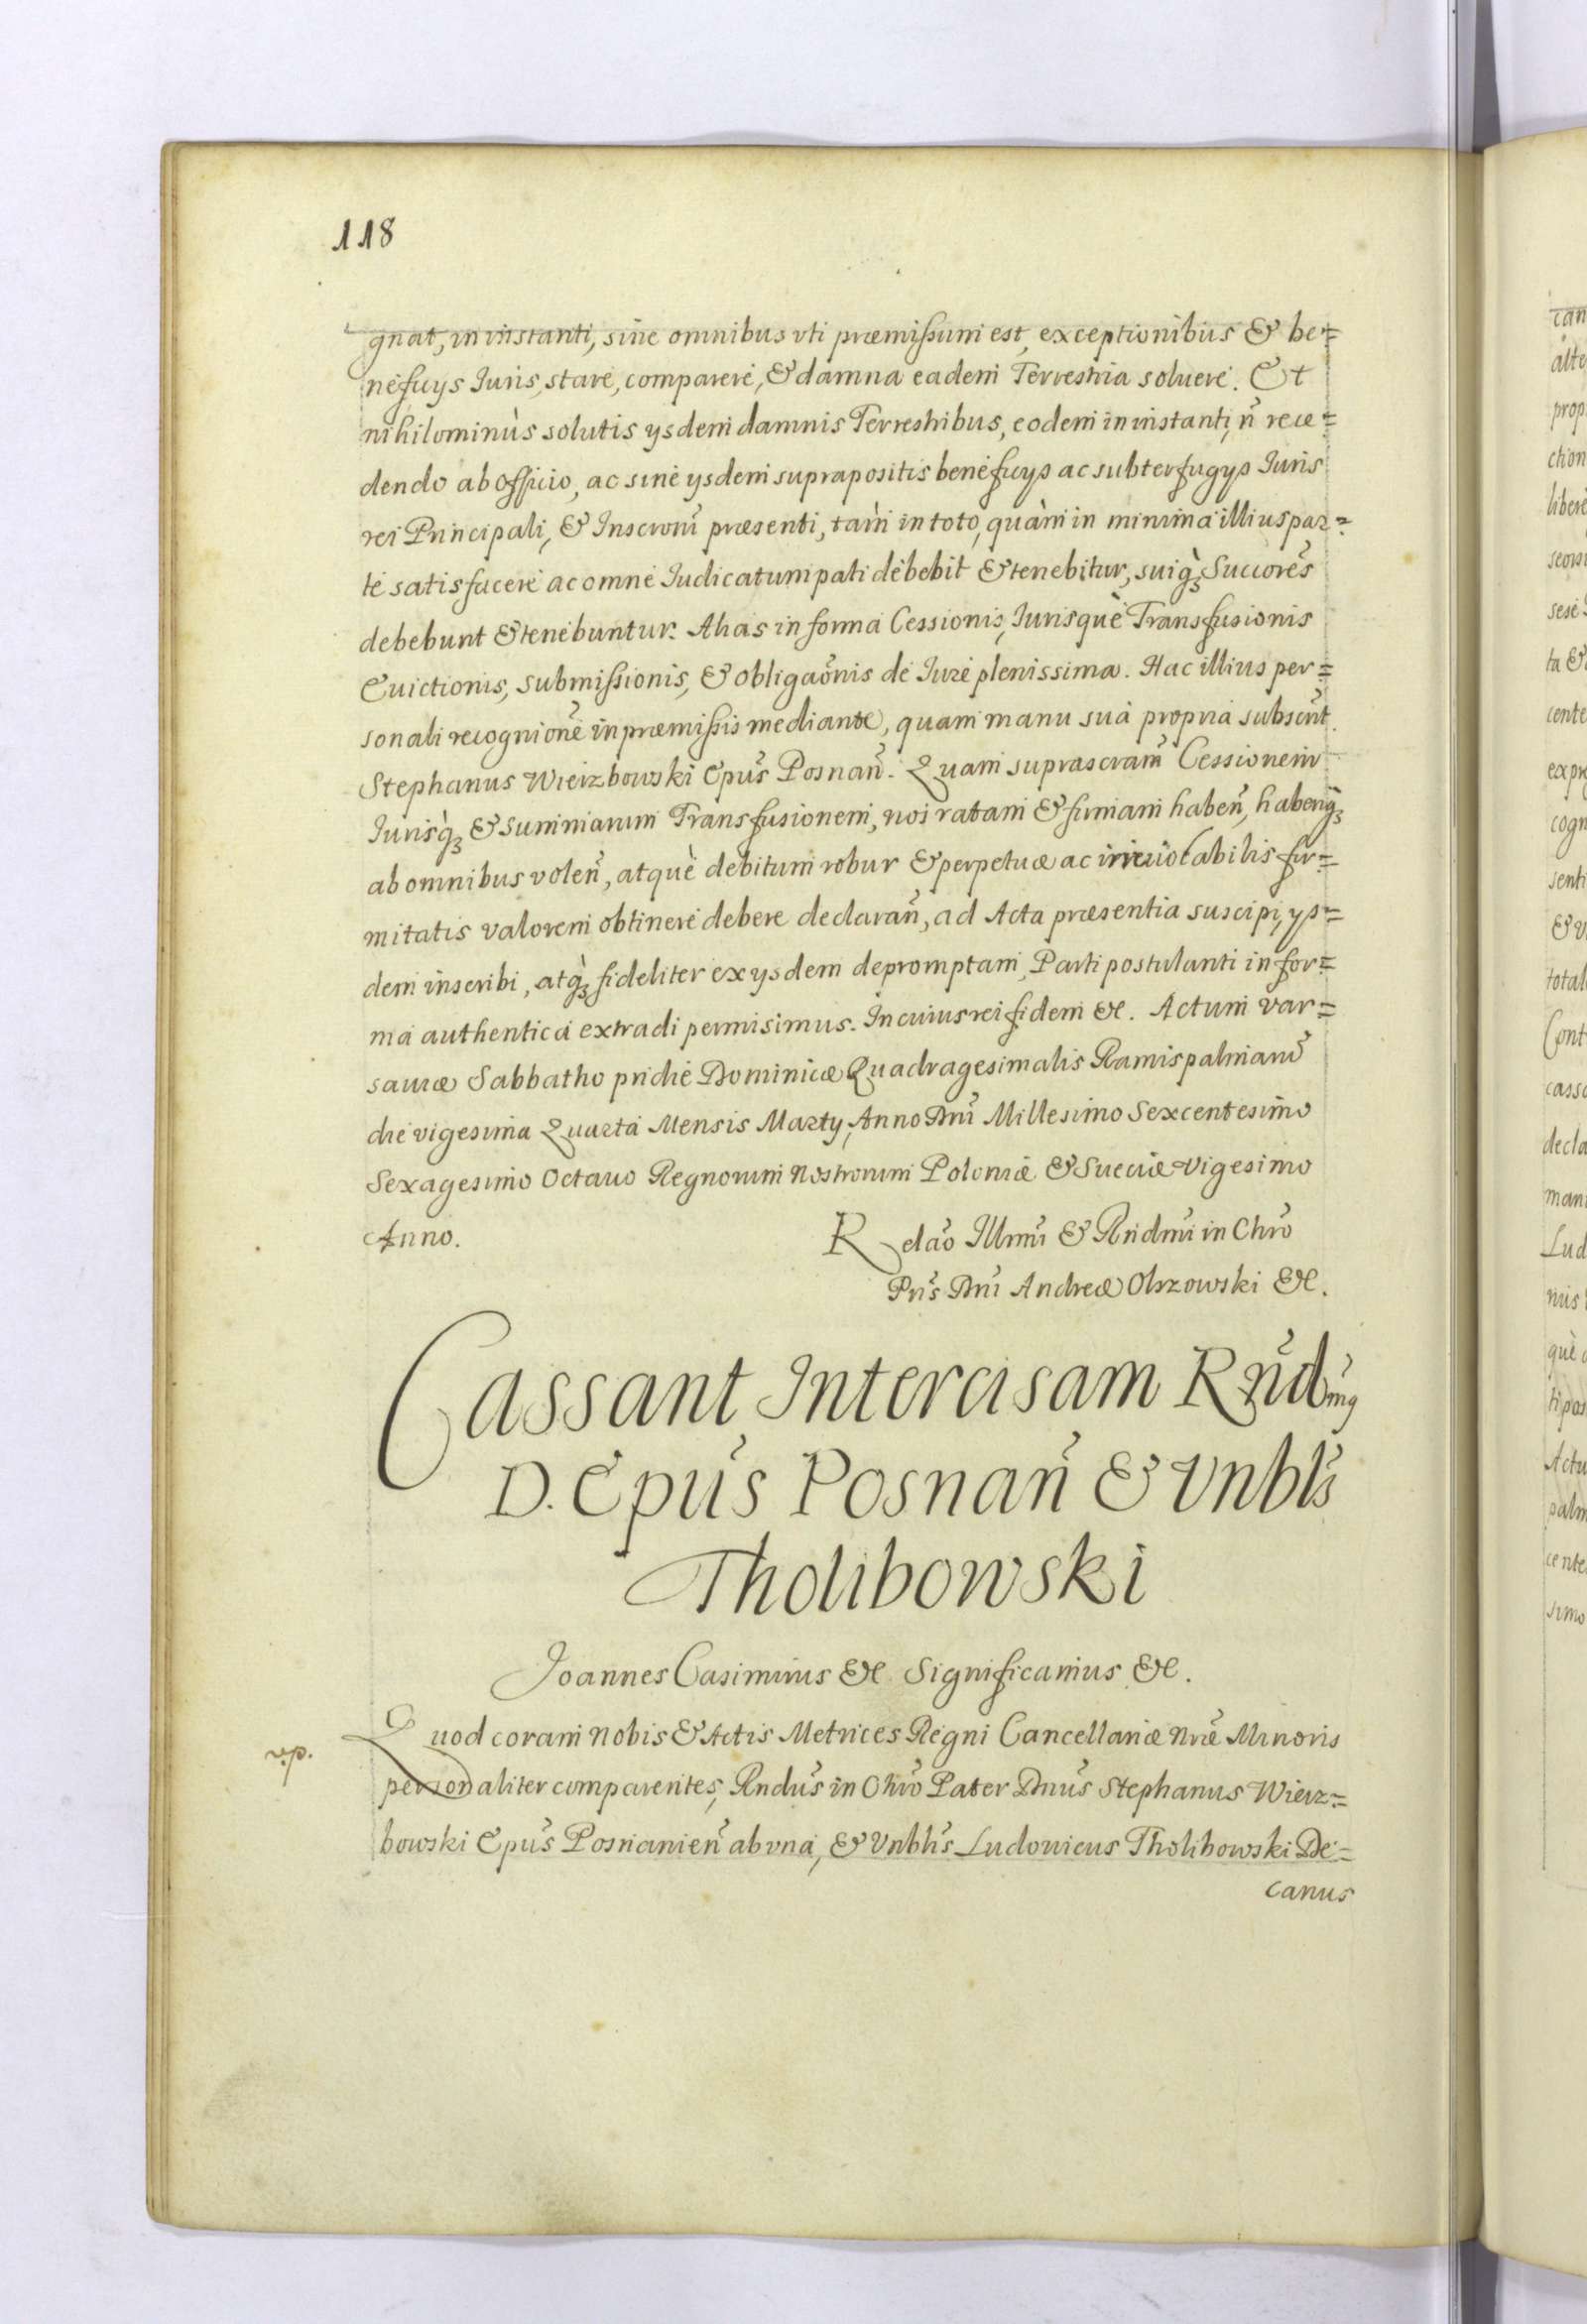 118
gnat, in instanti, sine omnibus vti præmissum est, exceptionibus & be=
neficÿs Iuris, stare, comparere, & damna eadem Terrestria soluere. Et
nihilominùs solutis ÿsdem damnis Terrestribus, eodem in instanti, ñ rece=
dendo ab officio, ac sine ÿsdem suprapositis beneficÿs ac subterfugÿs Iuris
rei Principali, & Inscroni præsenti, tàm in toto, quàm in minima illius par=
te satisfacere ac omne Iudicatum pati debebit & tenebitur, suiq́ꝫ Succores
debebunt & tenebuntur. Alias in forma Cessionis, Iurisquè Transfusionis
Euictionis, submissionis, & obligaõnis de Iure plenissima. Hac illius per=
sonali recognione in præmissis mediante, quam manu suà propria subscrit.
Stephanus Wierzbowski Epus Posnañ. Quam suprascram Cessionem
Iurisq́ꝫ & summarum Transfusionem, nos ratam & firmam habeñ, haberiq́ꝫ
ab omnibus voleñ, atquè debitum robur & perpetuæ ac irreuocabilis fir=
mitatis valorem obtinere debere declarañ, ad Acta præsentia suscipi, ÿs=
dem inseribi, atq́ꝫ fideliter ex ÿsdem depromptam, Parti postulanti in for=
ma authentica extradi permisimus. In cuius rei fidem &c. Actum Var=
sauiæ Sabbatho pridie Dominicæ Quadragesimalis Ramispalmarũ
die vigesima Quarta Mensis Martÿ, Anno Dni Millesimo Sexcentesimo
Sexagesimo Octauo Regnorum Nostrorum Poloniæ & Sueciæ Vigesimo
Anno.
Relaõ Illmi & Rndmi in Chro
Pris Dni Andreæ Olszowski &c.
Cassant Intercisam Rndmꝯ
D. Epus Posnañ & Vnblis
Tholibowski
Joannes Casimirus &c Significamus &c.
Quod coram Nobis & Actis Metrices Regni Cancellariæ Nræ Minoris
personaliter comparentes, Rndus in Chro Pater Dnus Stephanus Wierz=
bowski Epus Posnanieñ ab vna, & Vnblis Ludouicus Tholibowski De=
canus